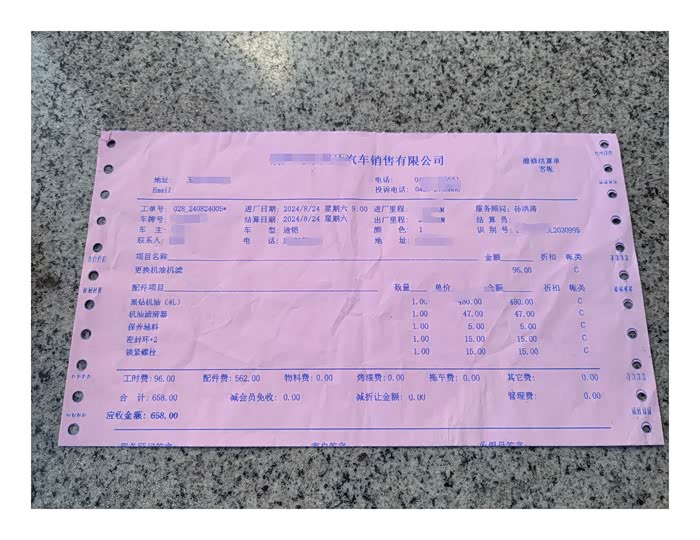 汽车销售有限公司
维修结算单
客账
地址:
电话:
Email
投诉电话:
工单号: 028_240824005* 进厂日期: 2024/8/24 星期六 9:00 进厂里程: 服务顾问: 孙洪涛
车牌号: 结算日期: 2024/8/24 星期六 出厂里程: 结 算 员:
车 主: 车 型: 途铠 颜 色: 1 识 别 号: 2030995
联系人: 电 话: 地 址:
项目名称 金额 折扣 账类
更换机油机滤 96.00 C
配件项目 数量 单价 金额 折扣 账类
黑钻机油 (4L) 1.00 480.00 480.00 C
机油滤清器 1.00 47.00 47.00 C
保养辅料 1.00 5.00 5.00 C
密封环+2 1.00 15.00 15.00 C
锁紧螺栓 1.00 15.00 15.00 C
工时费: 96.00 配件费: 562.00 物料费: 0.00 烤漆费: 0.00 拖车费: 0.00 其它费: 0.00
合 计: 658.00 减会员免收: 0.00 减折让金额: 0.00 管理费: 0.00
应收金额: 658.00